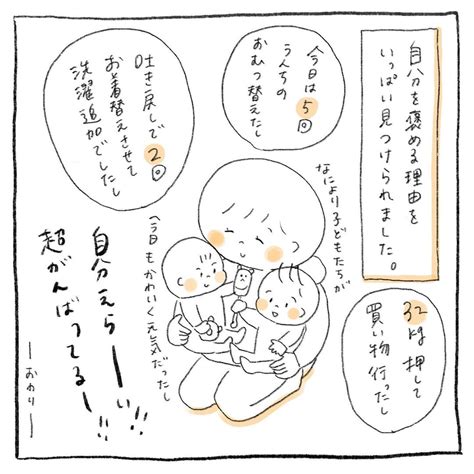 自分を褒める理由を
いっぱい見つけられました。
今日は5回
うんちの
おむつ替えたし
吐き戻しで2回
お着替えさせて
洗濯追加でしたし
32kg押して
買い物行ったし
なにより子どもたちが
今日もかわいく元気だったし
自分えらーーい!!
超がんばってるー!!
ーおわりー